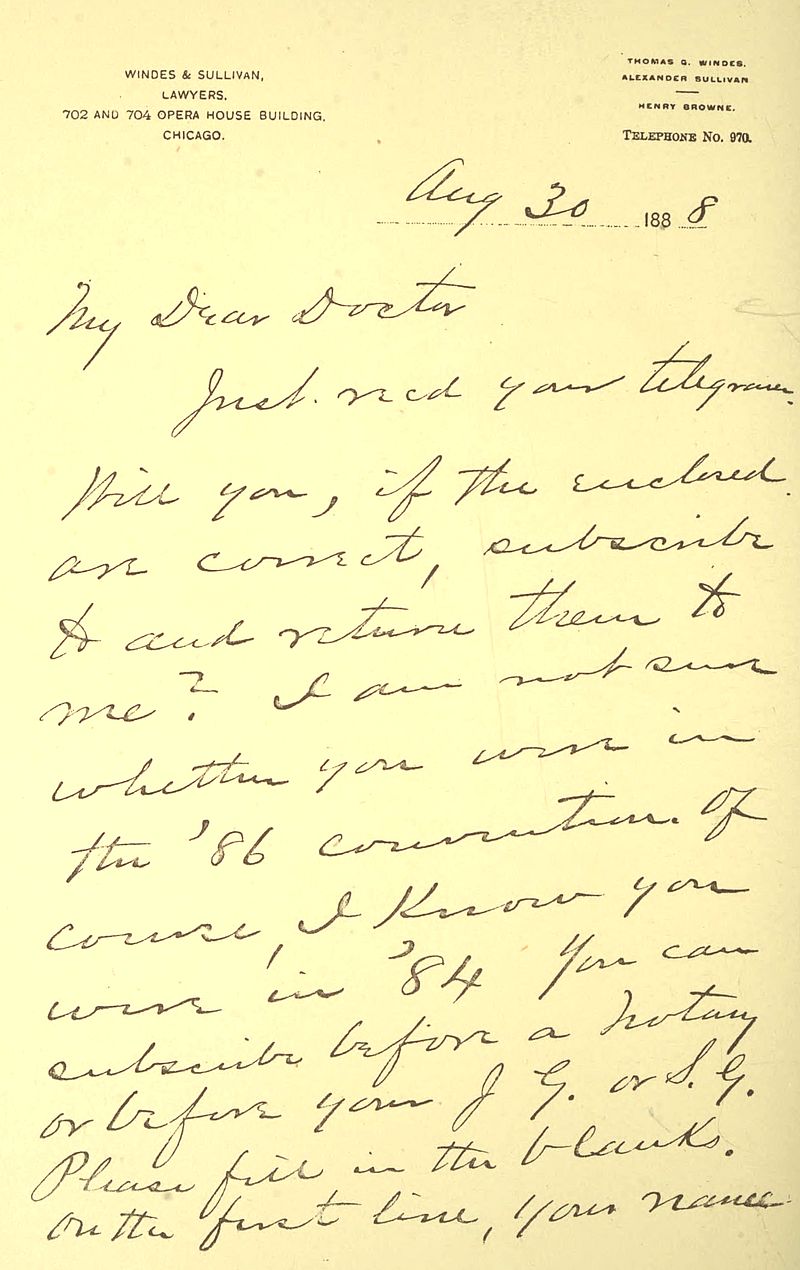 WINDES & SULLIVAN,
LAWYERS.
702 AND 704 OPERA HOUSE BUILDING,
CHICAGO.
THOMAS G. WINDES.
ALEXANDER SULLIVAN
HENRY BROWNE.
TELEPHONE NO. 970.
Aug 30 1888
My Dear Doctor
Just recd your telegram.
Will you, if the enclosed
are correct, subscribe
to and return them to
me? I am not sure
whether you were in
the '86 convention. Of
course, I Know you
were in '84 You can
subscribe before a notary
or before your J G. or S. G.
Please fill in the blanks.
On the first line, your name